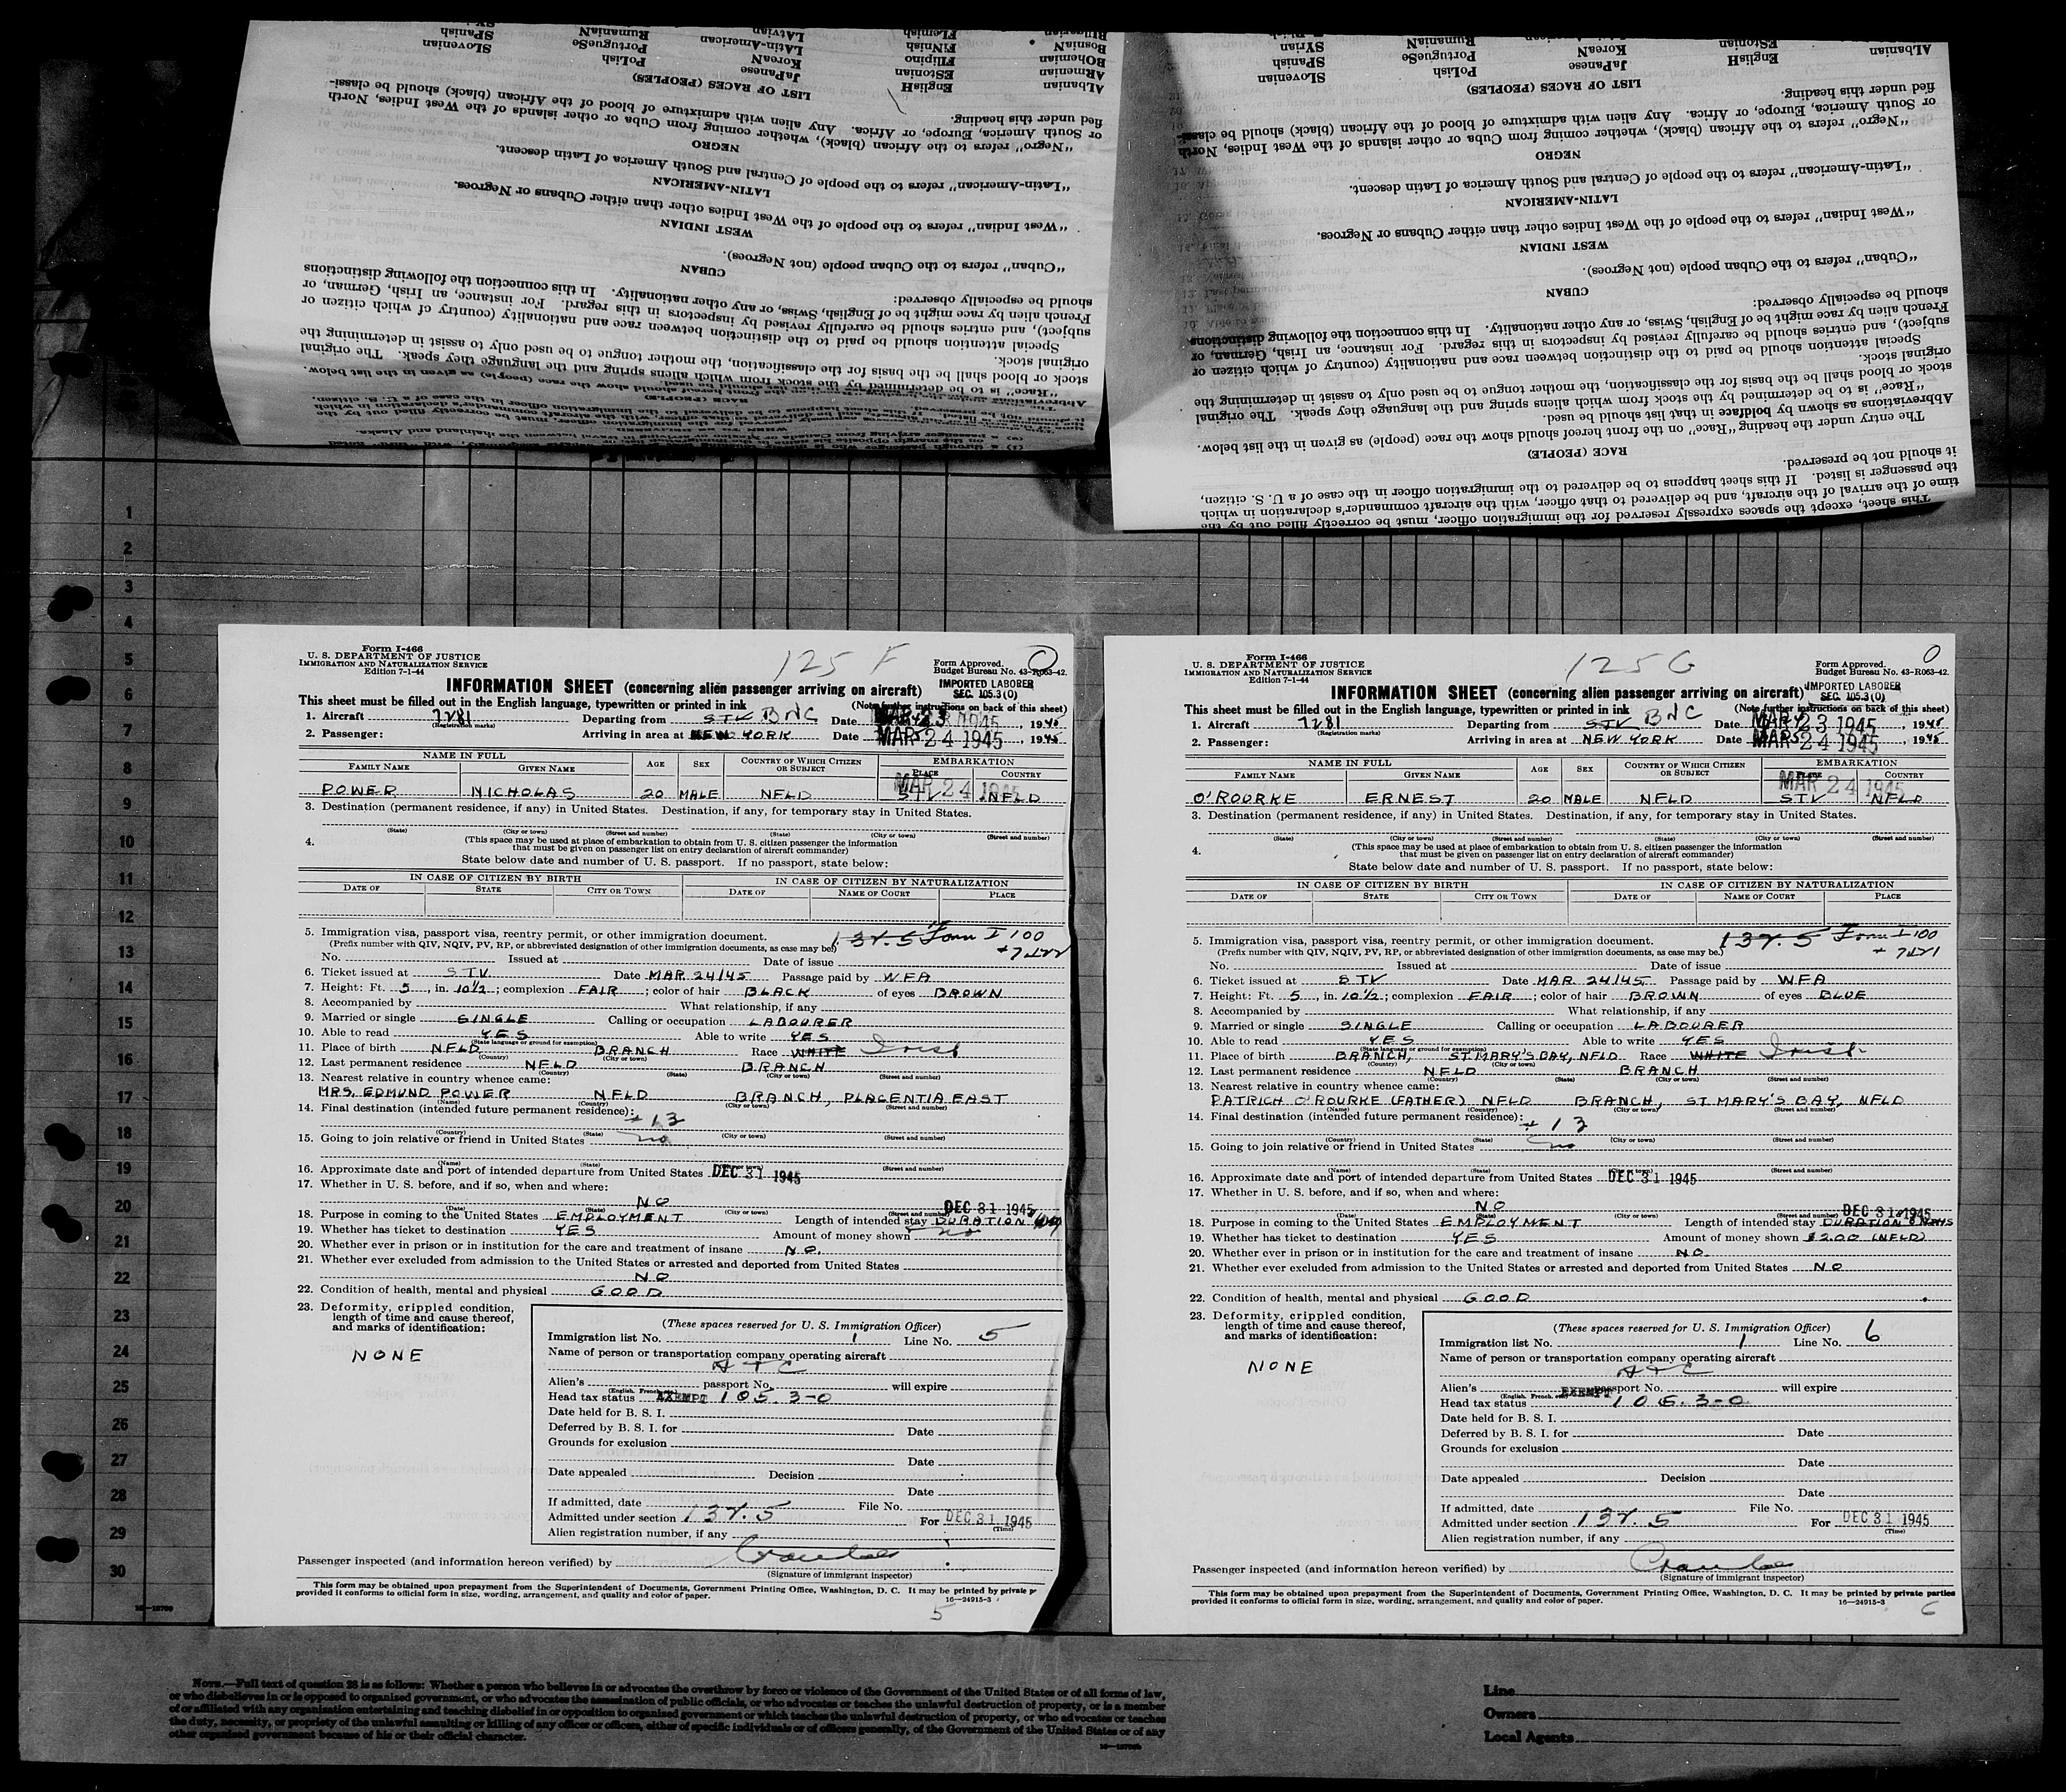 SLOVENIAN
SPANISH
POLISH
PORTUGUESE
RUMANIAN
JAPANESE
KOREAN
LATIN-AMERICAN
ENGLISH
ESTONIAN
FILIPINO
FINNISH
FLEMISH
ALBANIAN
ARMENIAN
BOHEMIAN
BOSNIAN
LIST OF RACES (PEOPLES)
or South America, Europe, or Africa. Any alien with admixture of blood of the African (black) should be classi-
fied under this heading.
"Negro" refers to the African (black), whether coming from Cuba or other islands of the West Indies, North
NEGRO
"Latin-American" refers to the people of Central and South America of Latin descent.
LATIN-AMERICAN
"West Indian" refers to the people of the West Indies other than either Cubans or Negroes.
WEST INDIAN
"Cuban" refers to the Cuban people (not Negroes).
CUBAN
should be especially observed:
French alien by race might be of English, Swiss, or any other nationality. In this connection the following distinctions
subject), and entries should be carefully revised by inspectors in this regard. For instance, an Irish, German, or
Special attention should be paid to the distinction between race and nationality (country of which citizen or
original stock.
stock or blood shall be the basis for the classification, the mother tongue to be used only to assist in determining the
"Race" is to be determined by the stock from which aliens spring and the language they speak. The original
Abbreviations as shown by boldface in that list should be used.
The entry under the heading "Race" on the front hereof should show the race (people) as given in the list below.
RACE (PEOPLE)
it should not be preserved.
the passenger is listed. If this sheet happens to be delivered to the immigration officer in the case of a U. S. citizen,
time of the arrival of the aircraft, and be delivered to that officer, with the aircraft commander's declaration in which
This sheet, except the spaces expressly reserved for the immigration officer, must be correctly filled out by the
Form I-466
U. S. DEPARTMENT OF JUSTICE
IMMIGRATION AND NATURALIZATION SERVICE
Edition 7-1-44
125 F
Form Approved.
Budget Bureau No. 43-R063-42.
INFORMATION SHEET (concerning alien passenger arriving on aircraft)
IMPORTED LABORER
SEC. 105.3 (0)
This sheet must be filled out in the English language, typewritten or printed in ink (Note further instructions on back of this sheet)
1. Aircraft 7281 Departing from STV BNC Date MAR 23 1945, 1945
(Registration marks)
2. Passenger: Arriving in area at NEW YORK Date MAR 24 1945, 1945
NAME IN FULL AGE SEX COUNTRY OF WHICH CITIZEN OR SUBJECT EMBARKATION
FAMILY NAME GIVEN NAME PLACE COUNTRY
MAR 24 1945
POWER NICHOLAS 20 MALE NFLD STV NFLD
3. Destination (permanent residence, if any) in United States. Destination, if any, for temporary stay in United States.
(State) (City or town) (Street and number) (State) (City or town) (Street and number)
4. (This space may be used at place of embarkation to obtain from U. S. citizen passenger the information
that must be given on passenger list on entry declaration of aircraft commander)
State below date and number of U. S. passport. If no passport, state below:
IN CASE OF CITIZEN BY BIRTH IN CASE OF CITIZEN BY NATURALIZATION
DATE OF STATE CITY OR TOWN DATE OF NAME OF COURT PLACE
5. Immigration visa, passport visa, reentry permit, or other immigration document. 137.5 Form I 100
(Prefix number with QIV, NQIV, PV, RP, or abbreviated designation of other immigration documents, as case may be.)
No. Issued at Date of issue
6. Ticket issued at STV Date MAR 24/45 Passage paid by WFA
7. Height: Ft. 5, in. 10 1/2; complexion FAIR; color of hair BLACK of eyes BROWN
8. Accompanied by What relationship, if any
9. Married or single SINGLE Calling or occupation LABOURER
10. Able to read YES Able to write YES
(State language or ground for exemption)
11. Place of birth NFLD BRANCH Race WHITE Irish
(Country) (City or town)
12. Last permanent residence NFLD BRANCH
(Country) (State) (City or town) (Street and number)
13. Nearest relative in country whence came:
MRS. EDMUND POWER NFLD BRANCH, PLACENTIA EAST
(Name) (Country) (City or town) (Street and number)
14. Final destination (intended future permanent residence): # 13
(Country) (State) (City or town) (Street and number)
15. Going to join relative or friend in United States no
(Name) (State) (City or town) (Street and number)
16. Approximate date and port of intended departure from United States DEC 31 1945
17. Whether in U. S. before, and if so, when and where:
NO
(Date) (State) (City or town) (Street and number)
DEC 31 1945
18. Purpose in coming to the United States EMPLOYMENT Length of intended stay DURATION
19. Whether has ticket to destination YES Amount of money shown no
20. Whether ever in prison or in institution for the care and treatment of insane NO.
21. Whether ever excluded from admission to the United States or arrested and deported from United States
NO
22. Condition of health, mental and physical GOOD
23. Deformity, crippled condition,
length of time and cause thereof,
and marks of identification:
NONE
(These spaces reserved for U. S. Immigration Officer)
Immigration list No. 1 Line No. 5
Name of person or transportation company operating aircraft
ATC
Alien's passport No. will expire
(English, French, etc.)
Head tax status EXEMPT 105.3-0
Date held for B. S. I.
Deferred by B. S. I. for Date
Grounds for exclusion
Date
Date appealed Decision
Date
If admitted, date File No.
Admitted under section 137.5 For DEC 31 1945
(Time)
Alien registration number, if any
Passenger inspected (and information hereon verified) by
(Signature of immigrant inspector)
This form may be obtained upon prepayment from the Superintendent of Documents, Government Printing Office, Washington, D. C. It may be printed by private p
provided it conforms to official form in size, wording, arrangement, and quality and color of paper.
16—24915-3
5
Form I-466
U. S. DEPARTMENT OF JUSTICE
IMMIGRATION AND NATURALIZATION SERVICE
Edition 7-1-44
125 G
Form Approved.
Budget Bureau No. 43-R063-42.
INFORMATION SHEET (concerning alien passenger arriving on aircraft)
IMPORTED LABORER
SEC. 105.3 (0)
This sheet must be filled out in the English language, typewritten or printed in ink (Note further instructions on back of this sheet)
1. Aircraft 7281 Departing from STV BNC Date MAR 23 1945, 1945
(Registration marks)
2. Passenger: Arriving in area at NEW YORK Date MAR 24 1945, 1945
NAME IN FULL AGE SEX COUNTRY OF WHICH CITIZEN OR SUBJECT EMBARKATION
FAMILY NAME GIVEN NAME PLACE COUNTRY
MAR 24 1945
O'ROURKE ERNEST 20 MALE NFLD STV NFLD
3. Destination (permanent residence, if any) in United States. Destination, if any, for temporary stay in United States.
(State) (City or town) (Street and number) (State) (City or town) (Street and number)
4. (This space may be used at place of embarkation to obtain from U. S. citizen passenger the information
that must be given on passenger list on entry declaration of aircraft commander)
State below date and number of U. S. passport. If no passport, state below:
IN CASE OF CITIZEN BY BIRTH IN CASE OF CITIZEN BY NATURALIZATION
DATE OF STATE CITY OR TOWN DATE OF NAME OF COURT PLACE
5. Immigration visa, passport visa, reentry permit, or other immigration document. 137.5 Form I 100
(Prefix number with QIV, NQIV, PV, RP, or abbreviated designation of other immigration documents, as case may be.)
No. Issued at Date of issue
6. Ticket issued at STV Date MAR. 24/45 Passage paid by WFA
7. Height: Ft. 5, in. 10 1/2; complexion FAIR; color of hair BROWN of eyes BLUE
8. Accompanied by What relationship, if any
9. Married or single SINGLE Calling or occupation LABOURER
10. Able to read YES Able to write YES
(State language or ground for exemption)
11. Place of birth BRANCH, ST MARY'S BAY, NFLD Race WHITE Irish
(Country) (City or town)
12. Last permanent residence NFLD BRANCH
(Country) (State) (City or town) (Street and number)
13. Nearest relative in country whence came:
PATRICH O'ROURKE (FATHER) NFLD BRANCH, ST MARY'S BAY, NFLD
(Name) (Country) (City or town) (Street and number)
14. Final destination (intended future permanent residence): # 13
(Country) (State) (City or town) (Street and number)
15. Going to join relative or friend in United States no
(Name) (State) (City or town) (Street and number)
16. Approximate date and port of intended departure from United States DEC 31 1945
17. Whether in U. S. before, and if so, when and where:
NO
(Date) (State) (City or town) (Street and number)
DEC 31 1945
18. Purpose in coming to the United States EMPLOYMENT Length of intended stay DURATION
19. Whether has ticket to destination YES Amount of money shown $2.00 (NFLD)
20. Whether ever in prison or in institution for the care and treatment of insane NO
21. Whether ever excluded from admission to the United States or arrested and deported from United States NO
22. Condition of health, mental and physical GOOD
23. Deformity, crippled condition,
length of time and cause thereof,
and marks of identification:
NONE
(These spaces reserved for U. S. Immigration Officer)
Immigration list No. 1 Line No. 6
Name of person or transportation company operating aircraft
ATC
Alien's passport No. will expire
(English, French, etc.)
Head tax status EXEMPT 105.3-0
Date held for B. S. I.
Deferred by B. S. I. for Date
Grounds for exclusion
Date
Date appealed Decision
Date
If admitted, date File No.
Admitted under section 137.5 For DEC 31 1945
(Time)
Alien registration number, if any
Passenger inspected (and information hereon verified) by
(Signature of immigrant inspector)
This form may be obtained upon prepayment from the Superintendent of Documents, Government Printing Office, Washington, D. C. It may be printed by private parties
provided it conforms to official form in size, wording, arrangement, and quality and color of paper.
16—24915-3
6
1
2
3
4
5
6
7
8
9
10
11
12
13
14
15
16
17
18
19
20
21
22
23
24
25
26
27
28
29
30
NOTE.—Full text of question 28 is as follows: Whether a person who believes in or advocates the overthrow by force or violence of the Government of the United States or of all forms of law,
or who disbelieves in or is opposed to organized government, or who advocates the assassination of public officials, or who advocates or teaches the unlawful destruction of property, or is a member
of or affiliated with any organization entertaining and teaching disbelief in or opposition to organized government or which teaches the unlawful destruction of property, or who advocates or teaches
the duty, necessity, or propriety of the unlawful assaulting or killing of any officer or officers, either of specific individuals or of officers generally, of the Government of the United States or of any
other organized government because of his or their official character.
Line
Owners
Local Agents